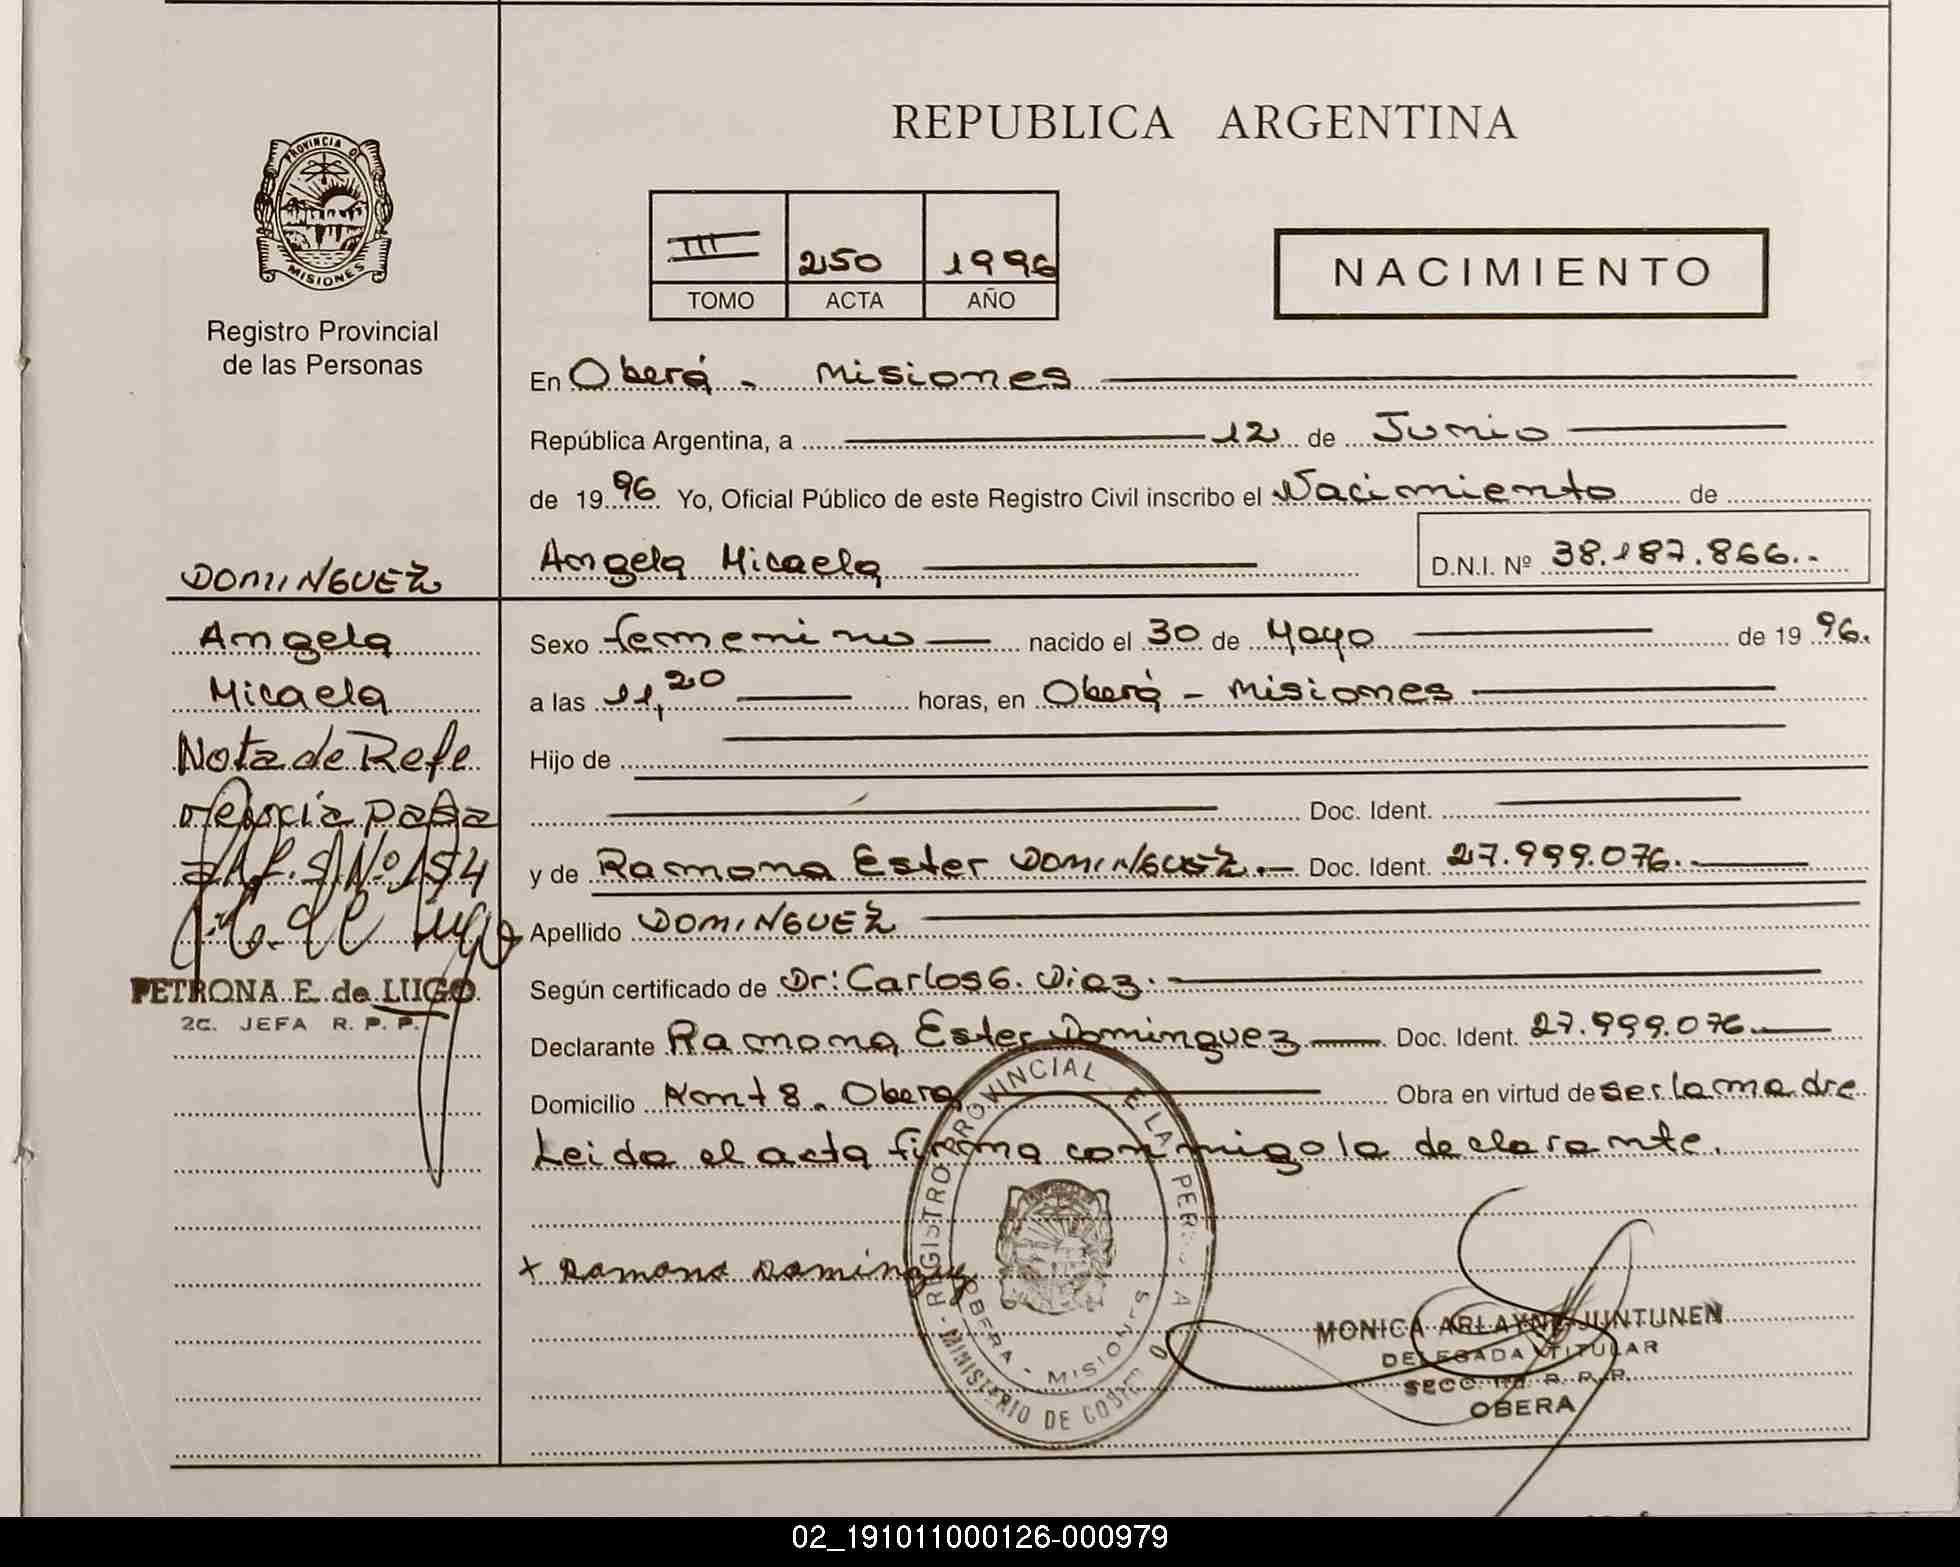 REPUBLICA ARGENTINA
PROVINCIA DE
MISIONES
Registro Provincial
de las Personas
III 250 1996
TOMO ACTA AÑO
NACIMIENTO
En Oberá - Misiones
República Argentina, a 12 de Junio
de 19 96 Yo, Oficial Público de este Registro Civil inscribo el Nacimiento de
Angela Micaela D.N.I. Nº 38.187.866.-
DOMINGUEZ
Angela
Micaela
Nota de Refe
rencia pasa
al F. S/Nº 154
P. E. de Lugo
PETRONA E. de LUGO
2c. JEFA R. P. P.
Sexo femenino nacido el 30 de Mayo de 19 96.
a las 11,20 horas, en Oberá - Misiones
Hijo de
Doc. Ident.
y de Ramona Ester DOMINGUEZ.- Doc. Ident. 27.999.076.-
Apellido DOMINGUEZ
Según certificado de Dr: Carlos G. Diez.-
Declarante Ramona Ester Dominguez Doc. Ident. 27.999.076.-
Domicilio Km 8. Obera Obra en virtud de ser la madre
Leida el acta firma conmigo la declarante.
x Ramona Dominguez
REGISTRO PROVINCIAL DE LAS PERSONAS
OBERA - MISIONES
MINISTERIO DE GOBIERNO
MONICA ARLAYNE JUNTUNEN
DELEGADA TITULAR
SECC. R. P. P.
OBERA
02_191011000126-000979